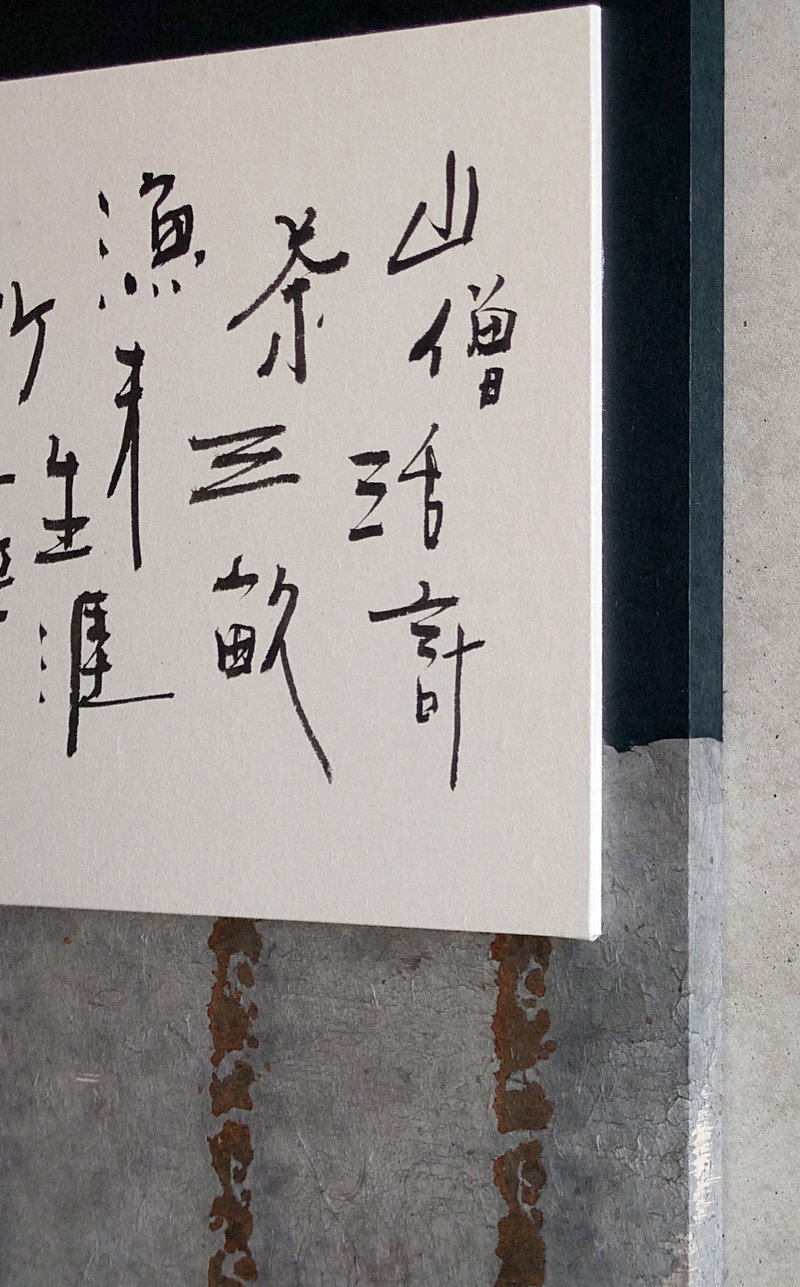 山僧活計
茶三畝
漁夫
生涯